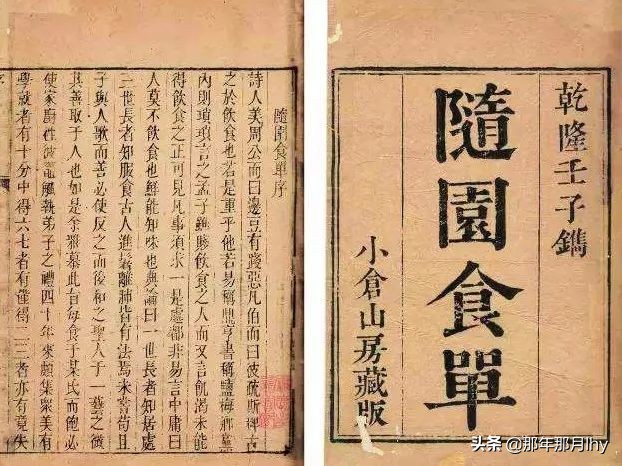 乾隆壬子鐫
隨園食單
小倉山房藏版
隨園食單序
詩人美周公而曰籩豆有踐惡凡伯而曰彼疏斯粺古
之於飲食也若是重乎他若易稱鼎亨書稱鹽梅鄉黨
內則瑣瑣言之孟子雖賤飲食之人而又言飢渴未能
得飲食之正可見凡事須求一是處都非易言中庸曰
人莫不飲食也鮮能知味也典論曰一世長者知居處
三世長者知服食古人進鬐離肺皆有法焉未嘗苟且
子與人歌而善必使反之而後和之聖人于一藝之微
其善取于人也如是余雅慕此旨每食于某氏而飽必
使家廚往彼灶觚執弟子之禮四十年來頗集衆美有
學就者有十分中得六七者有僅得二三者亦有竟失
头条 @那年那月lhy